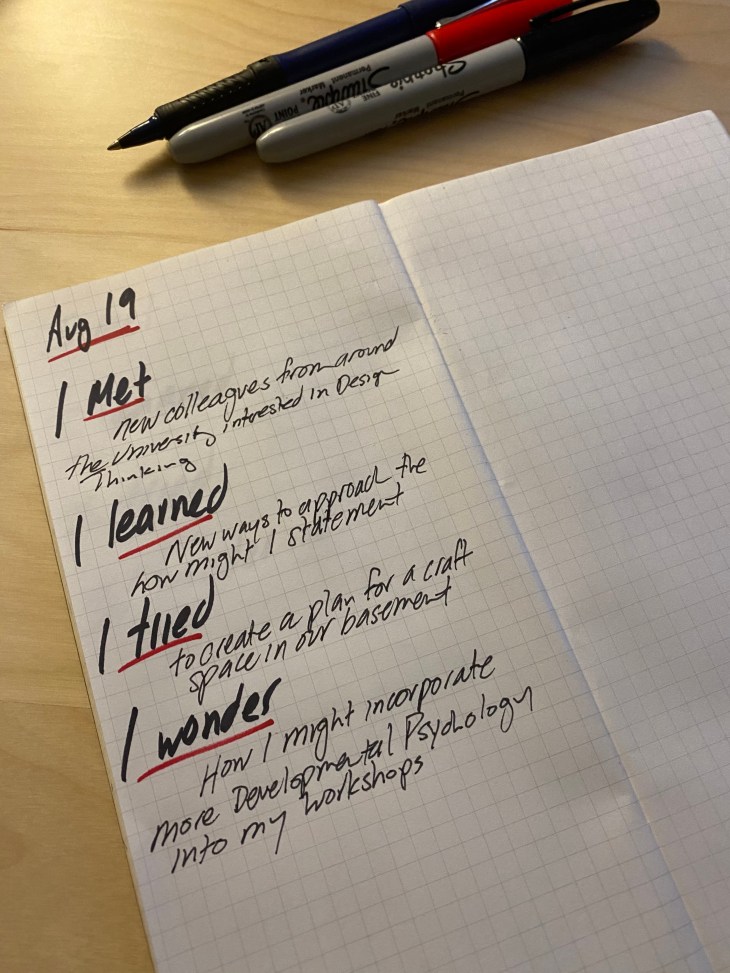 Sharpie
Permanent Marker
FINE POINT
Sharpie
Permanent Marker
Aug 19
I Met
new colleagues from around
the University intrested in Design
Thinking
I learned
New ways to approach the
how might I statement
I tried
to create a plan for a craft
space in our basement
I wonder
How I might incorporate
more Developmental Psychology
into my workshops